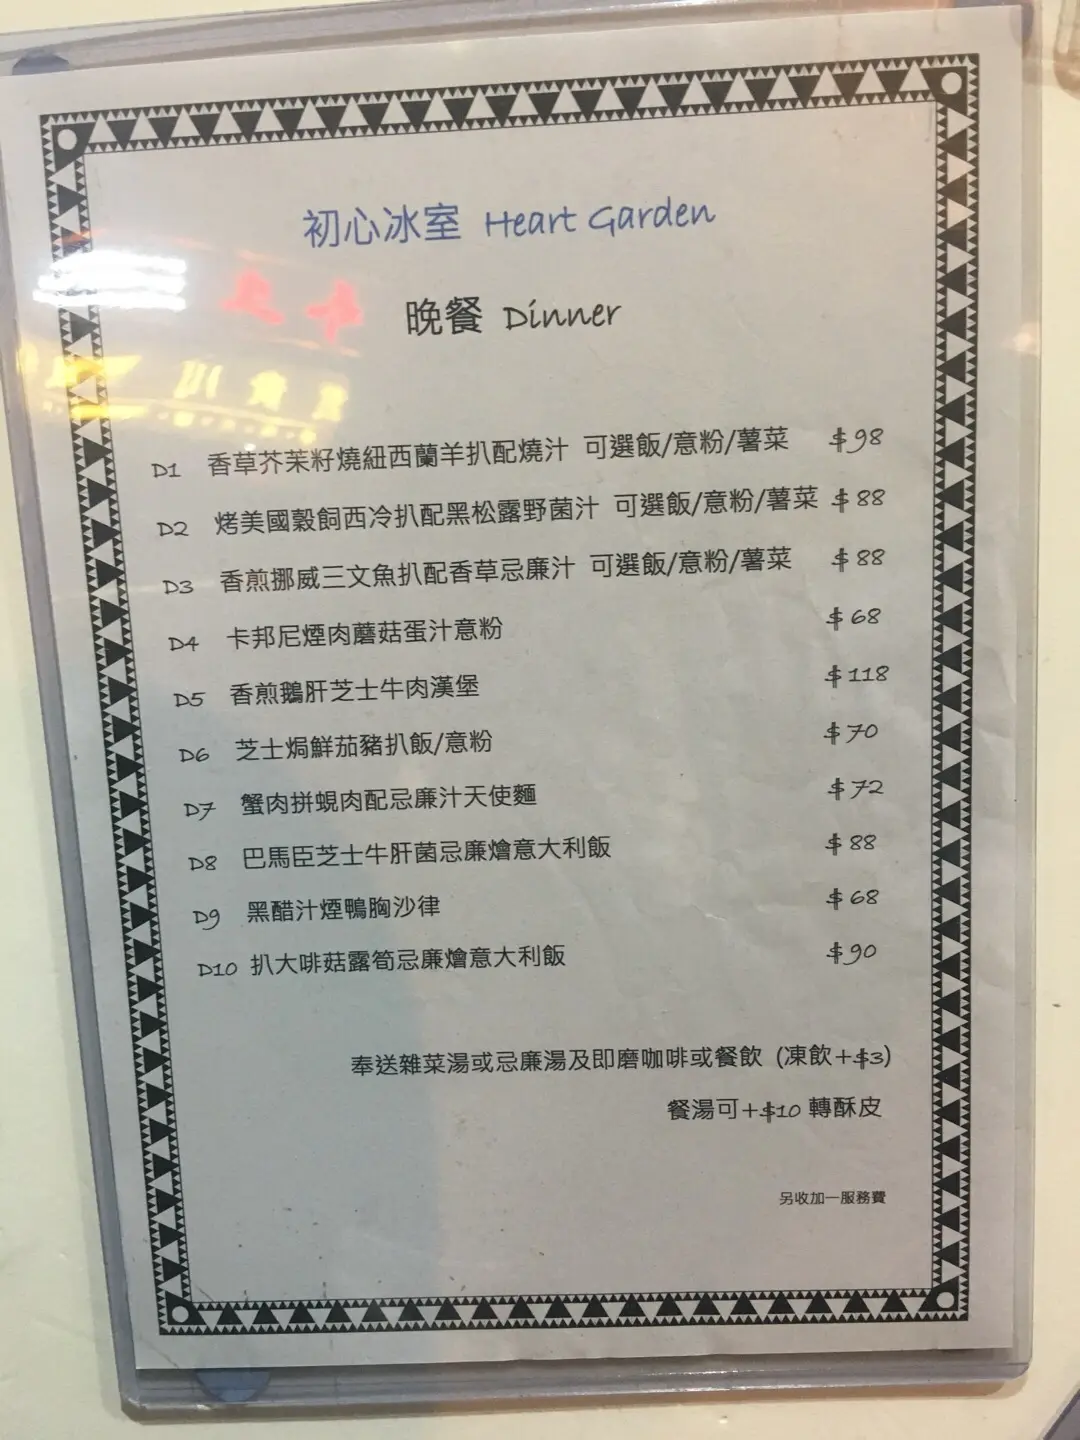 初心冰室 Heart Garden
晚餐 Dinner
D1 香草芥茉籽燒紐西蘭羊扒配燒汁 可選飯/意粉/薯菜 $98
D2 烤美國穀飼西冷扒配黑松露野菌汁 可選飯/意粉/薯菜 $88
D3 香煎挪威三文魚扒配香草忌廉汁 可選飯/意粉/薯菜 $88
D4 卡邦尼煙肉蘑菇蛋汁意粉 $68
D5 香煎鵝肝芝士牛肉漢堡 $118
D6 芝士焗鮮茄豬扒飯/意粉 $70
D7 蟹肉拼蜆肉配忌廉汁天使麵 $72
D8 巴馬臣芝士牛肝菌忌廉燴意大利飯 $88
D9 黑醋汁煙鴨胸沙律 $68
D10 扒大啡菇露筍忌廉燴意大利飯 $90
奉送雜菜湯或忌廉湯及即磨咖啡或餐飲 (凍飲+$3)
餐湯可+$10 轉酥皮
另收加一服務費